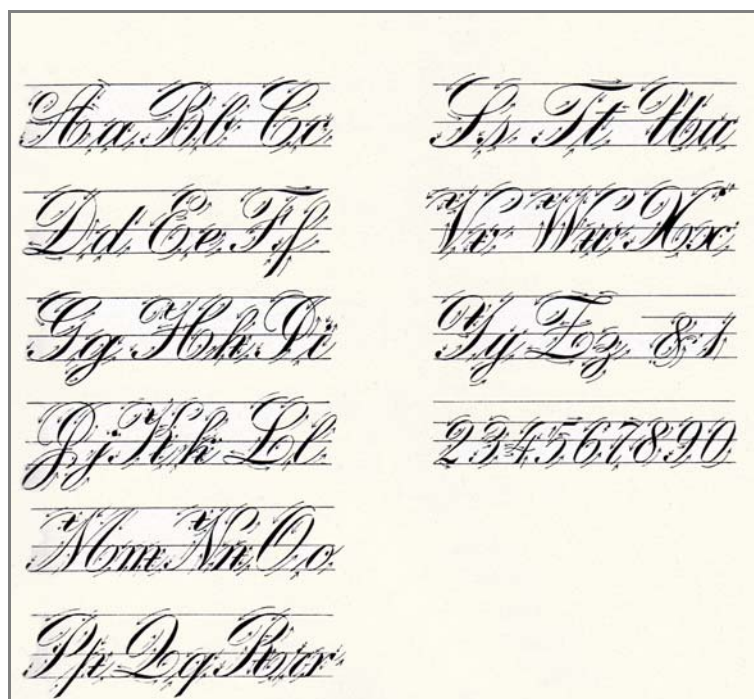 Aa Bb Cc
Dd Ee Ff
Gg Hh Ii
Jj Kk Ll
Mm Nn Oo
Pp Qq Rr r
Ss Tt Uu
Vv Ww Xx
Yy Zz & 1
2 3 4 5 6 7 8 9 0